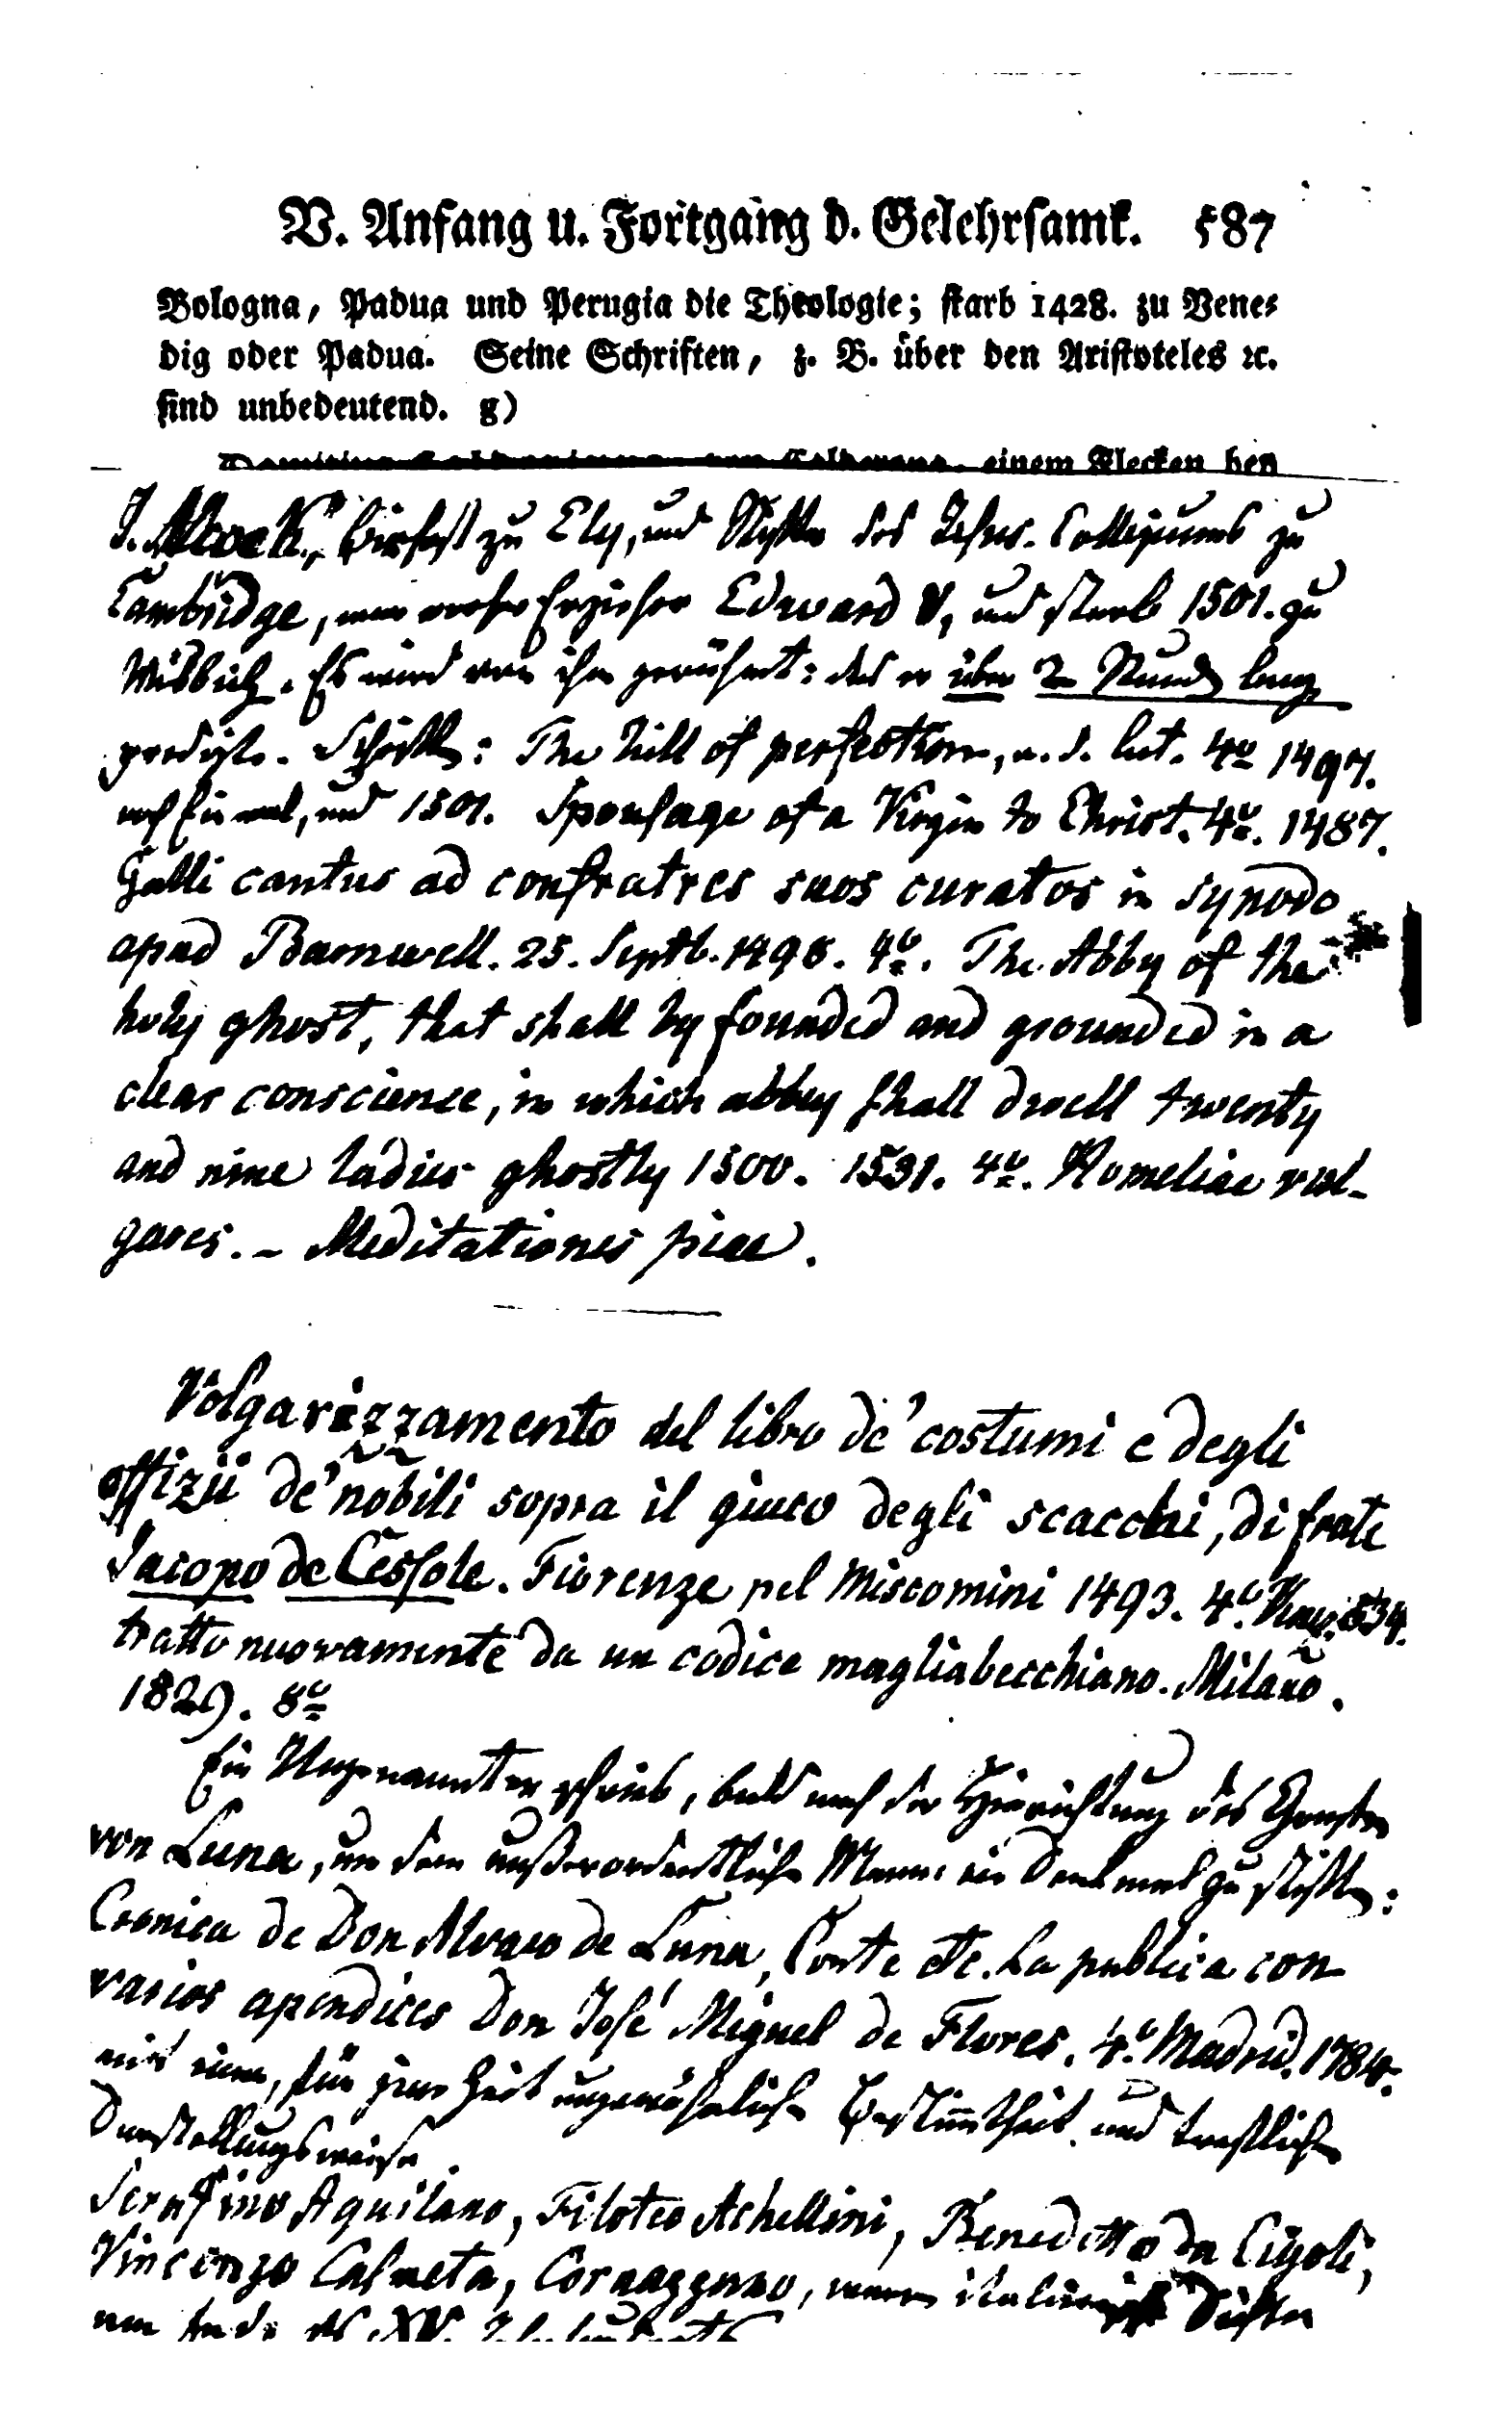 V. Anfang u. Fortgang d. Gelehrsamk. 587
Bologna, Padua und Perugia die Theologie; starb 1428. zu Vene-
dig oder Padua. Seine Schriften, z. B. über den Aristoteles ꝛc.
sind unbedeutend. g)
einem Flecken bey
J. Alcock, Bischoff zu Ely, und Stifter des Jesus-Collegiums zu
Cambridge, war Erzieher Edward V, und starb 1501. zu
Wisbich. Es wird von ihm gerühmt: das er über 2 Stunden lang
predigte. Schriften: The hill of perfection, a. d. lat. 4º 1497.
noch einmal, und 1501. Spousage of a Virgin to Christ. 4º. 1487.
Galli cantus ad confratres suos curatos in synodo
apud Barnwell. 25. Septb. 1498. 4º. The Abby of the
holy ghost, that shall by founded and grounded in a
clear conscience, in which abbey shall dwell twenty
and nine ladies ghostly 1500. 1531. 4º. Homeliae vul-
gares. - Meditationes piae.
Volgarizzamento del libro de' costumi e degli
offizii de' nobili sopra il giuco degli scacchi, di frate
Jacopo de Cessole. Fiorenze pel Miscomini 1493. 4º. 534.
tratto nuovamente da un codice magliabecchiano. Milano.
1829. 8º
Ein Ungenannter schrieb, bald nach der Hinrichtung des
von Luna, um dem außerordentlichen Manne ein Denkmal zu stiften:
Cronica de Don Alvaro de Luna, Conte etc. La publica con
varios apendices Don José Miguel de Flores. 4º. Madrid. 1784.
mit einer, für jene Zeit ungewöhnlichen Bestimtheit und trefflichen
Darstellungsweise
Serafino Aquilano, Filoteo Achellini, Benedetto da Cigoli,
Vincenzo Calmeta, Cornazzano, waren italienische Dichter
am Ende des XV. Jahrhunderts